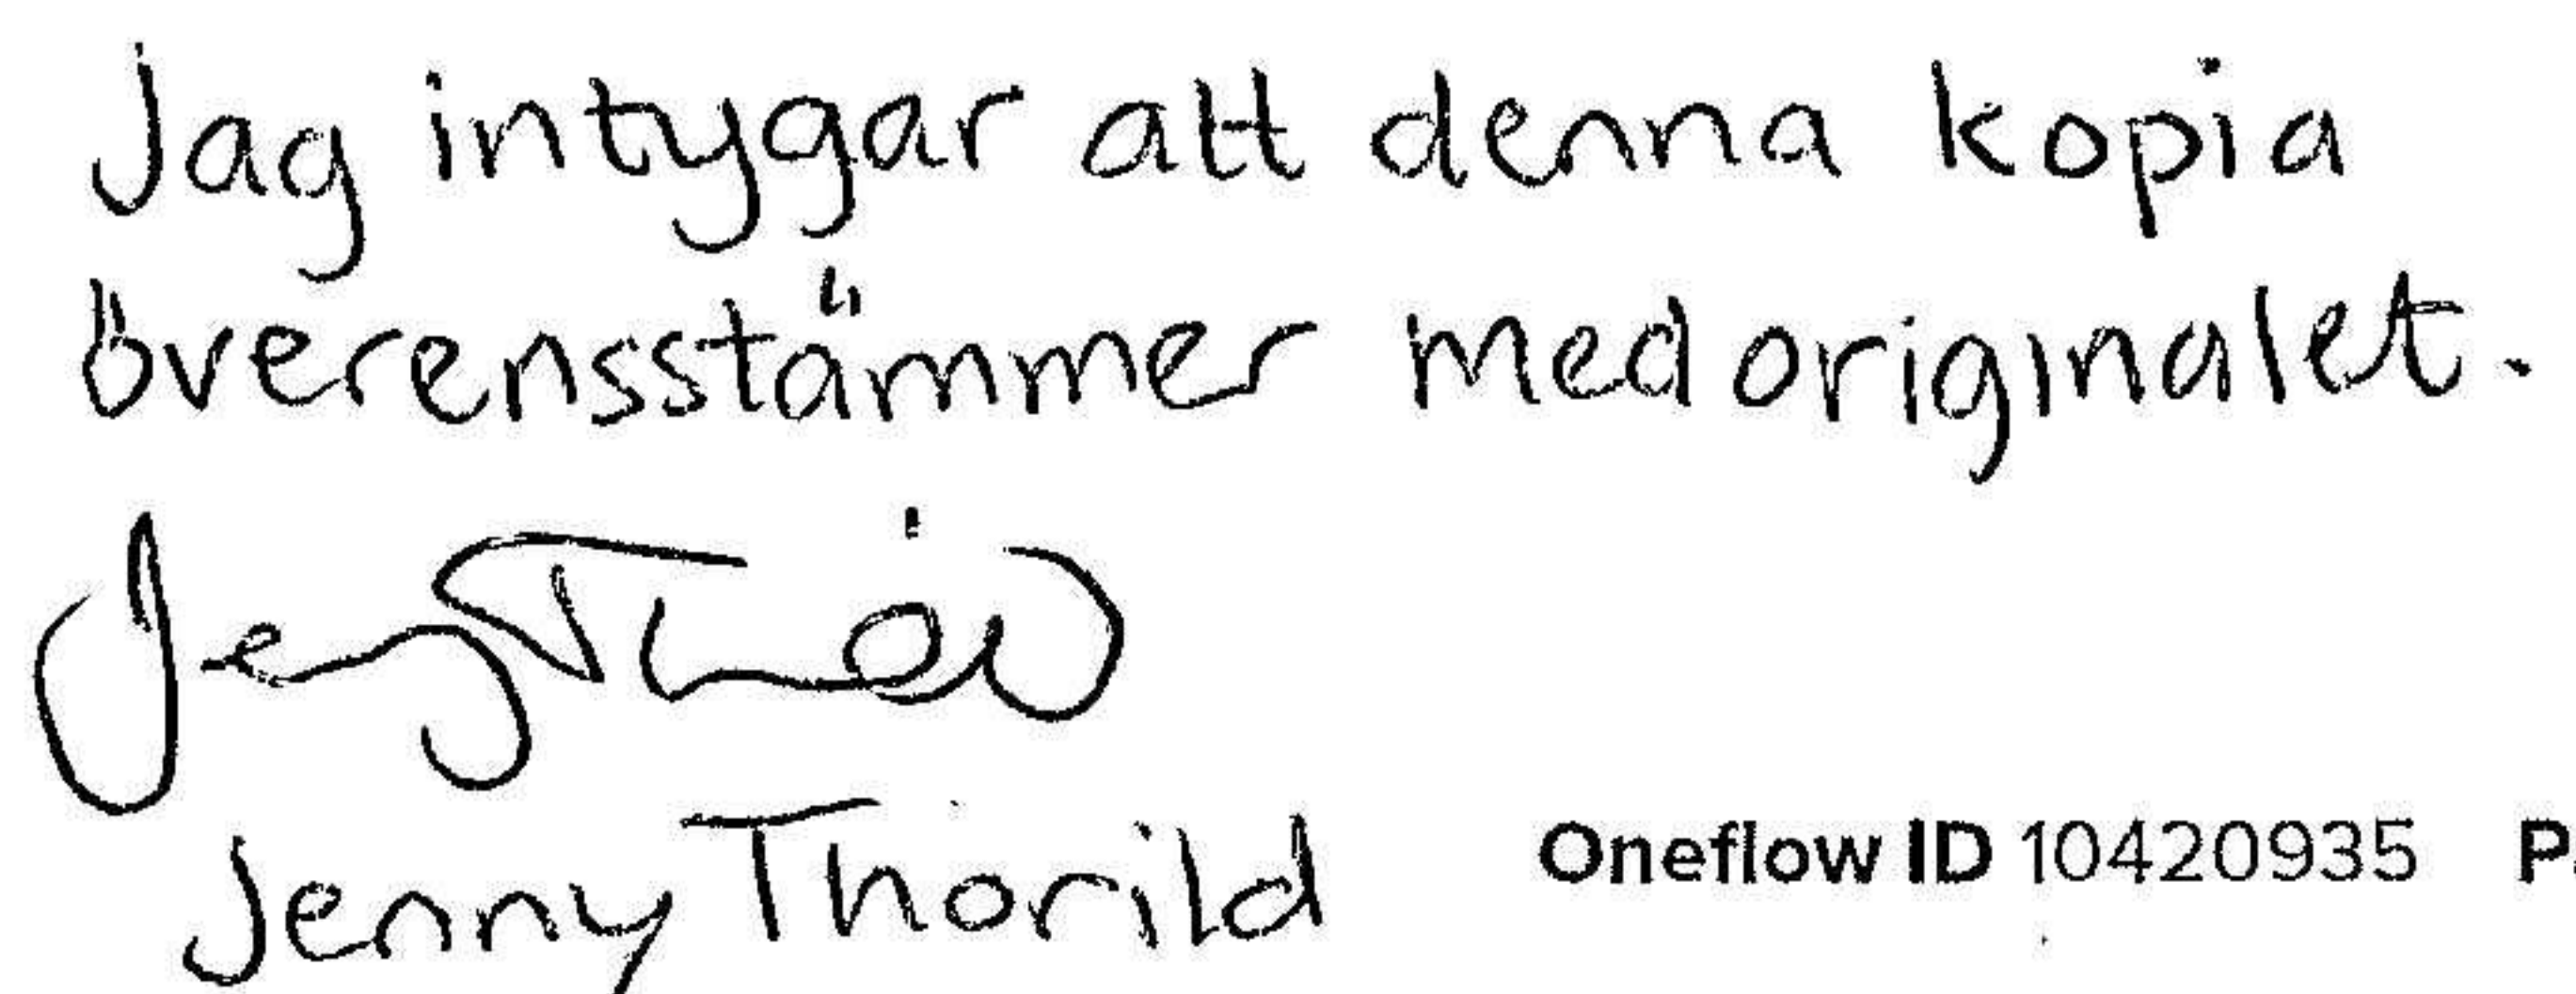 Jag intygar att denna kopia
överensstämmer med originalet.
Jenny Thorild
Jenny Thorild
Oneflow ID 10420935